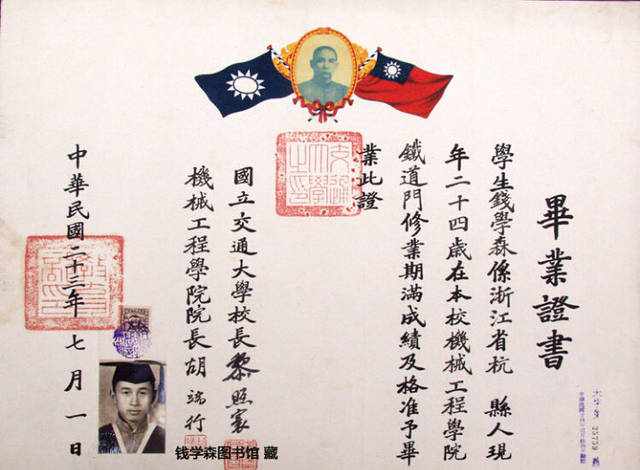 畢業證書
學生錢學森係浙江省杭 縣人現
年二十四歲在本校機械工程學院
鐵道門修業期滿成績及格准予畢
業此證
國立交通大學校長黎照寰
機械工程學院院長胡端行
中華民國二十三年 七月一日
钱学森图书馆 藏